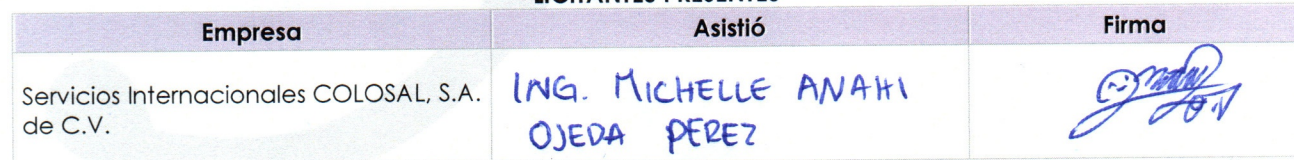 LICITANTES PRESENTES
Empresa Asistió Firma
Servicios Internacionales COLOSAL, S.A. de C.V.
ING. MICHELLE ANAHI
OJEDA PEREZ